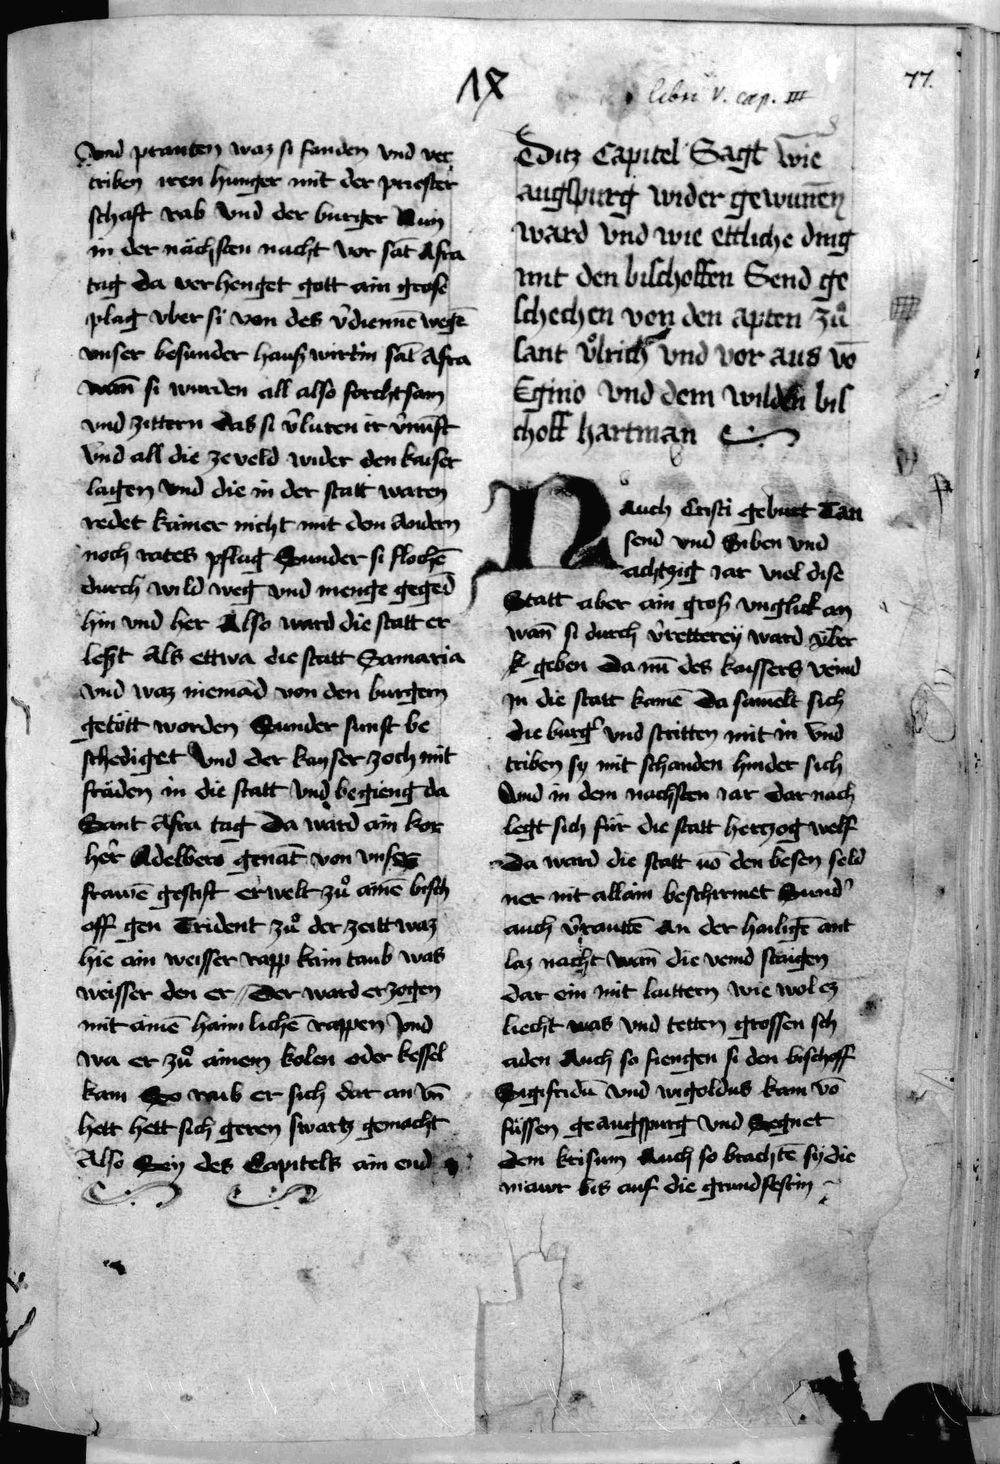 libri V. cap. III
77.
Vnd pranten waz si fanden vnd ver
triben iren hunger mit der priester
schaft rab Vnd der burger Nun
in der nächsten nacht vor sāt Afra
tag Da verhenget gott ain grose
plag vber si von des v̄diennē wegē
vnser besunder hauß wirtin sāt Afra
wan̄ si wurden all also forchtsam
vnd zittern Das si v̄luren ir v̄nūft
vnd all die ze veld wider den kaiser
lagen Vnd die in der statt waren
redet kainer nicht mit dem Andern
noch rates pflag Sunder si flochē
durch wild weg vnd menge gegēd
hin vnd her Also ward die statt er
leßt Als ettwa die statt Samaria
vnd waz niemād von den burgern
getött worden Sunder sunst be
schediget Vnd der kayser zoch mit
fräden in die statt Vnd begieng da
Sant Afra tag Da ward ain kor
her̄ Adelbero genāt von vnser
frawē gestift erwelt zů ainē bisch
off gen Trident zů der zeitt waz
hie ain weisser rapp kain taub was
weisser den er // Der ward erzogen
mit ainē haimlichē rappen Vnd
wa er zů ainem kolen oder kessel
kam So raub er sich dar an vn̄
hett hett sich geren swartz gemacht
Also Sey des Capitels ain end
Ditz Capitel Sagt wie
augspurg wider gewunen
ward Vnd wie ettliche ding
mit den bischoffen Send ge
schechen von den apten zů
sant ůlrich vnd vor aus vō
Egino vnd dem wilden bis
choff hartman
Nauch Cristi geburt Tau
send vnd Siben vnd
achtzig iar viel dise
Statt aber ain groß vnglick an
wan̄ si durch v̄retterey ward vber
geben Da nū des kaissers veind
in die statt kamē Da samelt sich
die burgr̄ vnd stritten mit in vnd
triben sy mit schanden hinder sich
Vnd in dem nachsten iar dar nach
legt sich für die statt hertzog welf
Da ward die statt vō den besen seld
ner nit allain beschirmet Sund'
auch v̄rauttē An der hailigē ant
laz nacht wan̄ die veind staigen
dar ein mit laittern wie wol ez
liecht was vnd tetten grossen sch
aden Auch so fiengen si den bischoff
Sigifridū vnd wigoldus kam vō
füssen ge augspurg vnd Segnet
dem krisum Auch so brachtē sy die
mawr bis auf die grundfestin